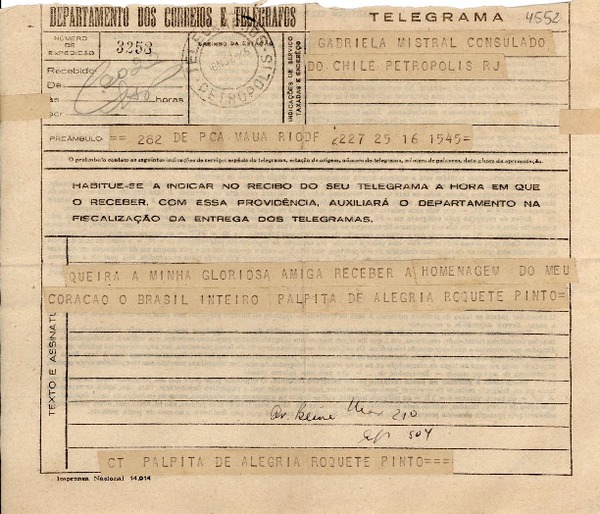 DEPARTAMENTO DOS CORREIOS E TELÉGRAFOS
TELEGRAMA
4552
NÚMERO DE EXPEDIÇÃO
3253
CARIMBO DA ESTAÇÃO
PETROPOLIS
INDICAÇÕES DE SERVIÇO TAXADAS E ENDEREÇO
GABRIELA MISTRAL CONSULADO
DO CHILE PETROPOLIS RJ
Recebido
De
às horas
por
PREÂMBULO == 282 DE PCA MAUA RIODF 2227 25 16 1545=
O preâmbulo contém as seguintes indicações de serviço: espécie do telegrama, estação de origem, número do telegrama, número de palavras, data e hora da apresentação.
HABITUE-SE A INDICAR NO RECIBO DO SEU TELEGRAMA A HORA EM QUE
O RECEBER. COM ESSA PROVIDÊNCIA, AUXILIARÁ O DEPARTAMENTO NA
FISCALIZAÇÃO DA ENTREGA DOS TELEGRAMAS.
TEXTO E ASSINATURA
QUEIRA A MINHA GLORIOSA AMIGA RECEBER A HOMENAGEM DO MEU
CORACAO O BRASIL INTEIRO PALPITA DE ALEGRIA ROQUETE PINTO=
210
504
CT PALPITA DE ALEGRIA ROQUETE PINTO===
Imprensa Nacional 14.014